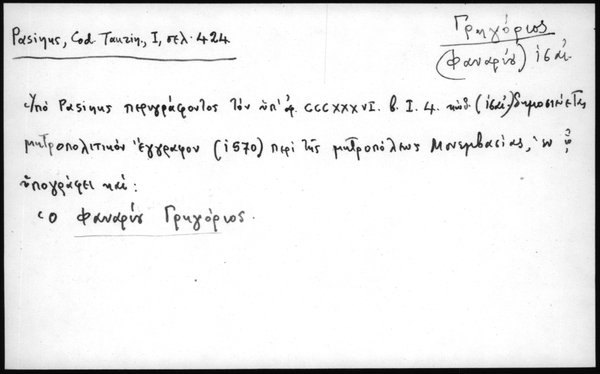 Pasinus, Cod. Taurin., I, σελ. 424
Γρηγόριος
(Φαναρίου) ις΄ αἰ.
Ὑπὸ Pasinus περιγράφοντος τὸν ὑπ' ἀρ. CCCXXXVI. b. I. 4. κώδ. (ις΄ αἰ.) δημοσιεύεται
μητροπολιτικὸν ἔγγραφον (1570) περὶ τῆς μητροπόλεως Μονεμβασίας, ἐν ᾧ
ὑπογράφει καί:
Ὁ Φαναρίου Γρηγόριος.